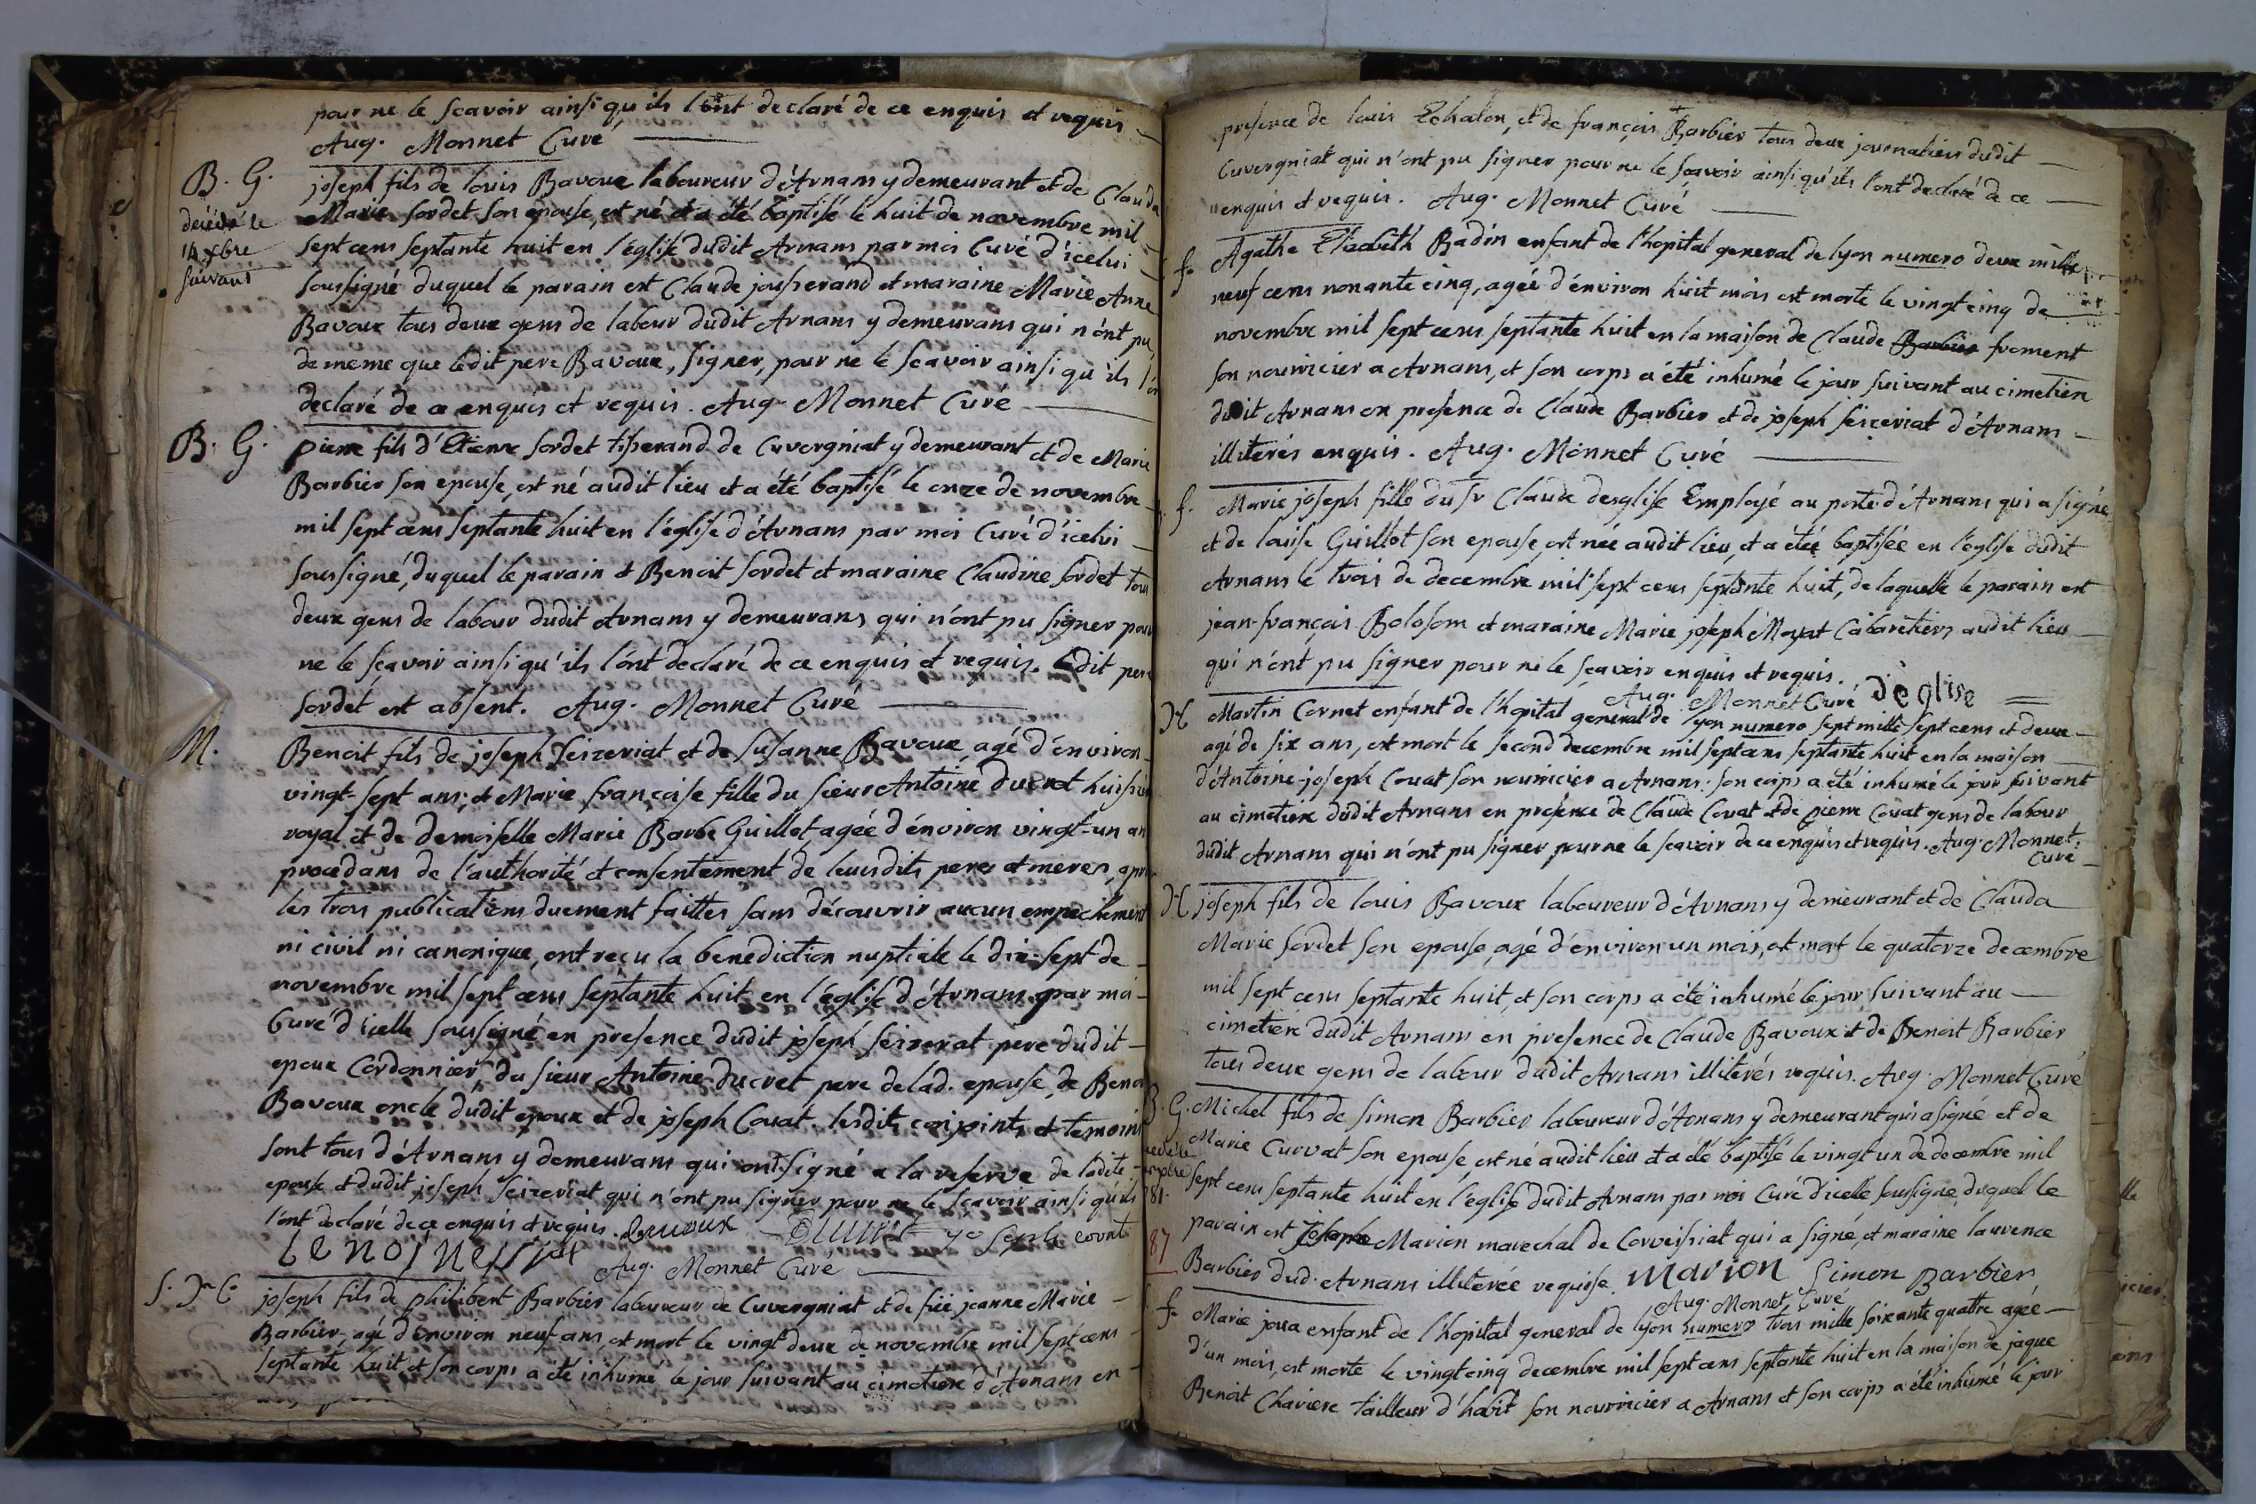 pour ne le scavoir ainsi qu'ils l'ont declaré de ce enquis et requis
Aug. Monnet Curé
B. G.
decédé le
14 xbre
suivant
joseph fils de louis Bavoux laboureur d'Arnans y demeurant et de Clauda
Marie sordet son epouse, est né et a été baptisé le huit de novembre mil
sept cens septante huit en l'église dudit Arnans par moi Curé d'icelui
soussigné duquel le parain est Claude jousserand et maraine Marie Anne
Bavoux tous deux gens de labour dudit Arnans y demeurans qui n'ont pu,
de meme que ledit pere Bavoux, signer, pour ne le scavoir ainsi qu'ils l'on
declaré de ce enquis et requis. Aug. Monnet Curé
B. G.
pierre fils d'Etienne sordet tisserand de Cuvergniat y demeurant et de Marie
Barbier son epouse, est né audit lieu et a été baptisé le onze de novembre
mil sept cens septante huit en l'église d'Arnans par moi Curé d'icelui
soussigné, duquel le parain est Benoit sordet et maraine Claudine sordet tous
deux gens de labour dudit Arnans y demeurans qui n'ont pu signer pour
ne le scavoir ainsi qu'ils l'ont declaré de ce enquis et requis. Ledit pere
sordet est absent. Aug. Monnet Curé
M.
Benoit fils de joseph seizeriat et de susanne Bavoux agé d'environ
vingt-sept ans; et Marie françoise fille du sieur Antoine ducret huissier
royal et de demoiselle Marie Barbe Guillot agée d'environ vingt-un an
procedans de l'authorité et consentement de leursdits peres et meres, apres
les trois publications duement faittes sans découvrir aucun empechement
ni civil ni canonique, ont reçu la benediction nuptiale le dix-sept de
novembre mil sept cens septante huit en l'église d'Arnans par moi
Curé d'icelle soussigné en presence dudit joseph seizeriat pere dudit
epoux Cordonnier, du sieur Antoine ducret pere de lad. epouse, de Benoit
Bavoux oncle dudit epoux et de joseph Couat. lesdits conjoints et temoins
sont tous d'Arnans y demeurans qui ont signé a la reserve de ladite
epouse et dudit joseph seizeriat qui n'ont pu signer pour ne le scavoir ainsi qu'ils
l'ont declaré de ce enquis et requis. Bavoux Ducret joseph couat
Aug. Monnet Curé
joseph fils de philibert Barbier laboureur de Cuvergniat et de fûë jeanne Marie
Barbier, agé d'environ neuf ans, est mort le vingt deux de novembre mil sept cens
septante huit et son corps a été inhumé le jour suivant au cimetiere d'Arnans en
presence de louis Echalon, et de françois Barbier tous deux journaliers dudit
Cuvergniat qui n'ont pu signer pour ne le scavoir ainsi qu'ils l'ont declaré de ce
enquis et requis. Aug. Monnet Curé
f.
Agathe Elizabeth Badin enfant de l'hopital general de lyon numero deux mille
neuf cens nonante cinq, agée d'environ huit mois est morte le vingt cinq de
novembre mil sept cens septante huit en la maison de Claude Barbier froment
son nourricier a Arnans, et son corps a été inhumé le jour suivant au cimetiere
dudit Arnans en presence de Claude Barbier et de joseph seizeriat d'Arnans
illiterés enquis. Aug. Monnet Curé
f.
Marie joseph fille du sr Claude desglise Employé au poste d'Arnans qui a signé
et de louise Guillot son epouse, est née audit lieu, et a été baptisée en l'eglise dudit
Arnans le trois de decembre mil sept cens septante huit, de laquelle le parain est
jean-françois Bolosom et maraine Marie joseph Moyat Cabaretiers audit lieu
qui n'ont pu signer pour ne le scavoir enquis et requis.
Aug. Monnet Curé d'eglise
Martin Cornet enfant de l'hopital general de lyon numero sept mille sept cens et deux
agé de six ans, est mort le second decembre mil sept cens septante huit en la maison
d'Antoine-joseph Couat son nourricier a Arnans: son corps a été inhumé le jour suivant
au cimetiere dudit Arnans en presence de Claude Couat et de pierre Couat gens de labour
dudit Arnans qui n'ont pu signer pour ne le scavoir de ce enquis et requis. Aug. Monnet
Curé
joseph fils de louis Bavoux laboureur d'Arnans y demeurant et de Clauda
Marie sordet son epouse, agé d'environ un mois, est mort le quatorze decembre
mil sept cens septante huit, et son corps a été inhumé le jour suivant au
cimetiere dudit Arnans en presence de Claude Bavoux et de Benoit Barbier
tous deux gens de labour dudit Arnans illiterés requis. Aug. Monnet Curé
B. G.
81.
87
Michel fils de simon Barbier laboureur d'Arnans y demeurant qui a signé et de
Marie Curvat son epouse, est né audit lieu et a été baptisé le vingt un de decembre mil
sept cens septante huit en l'église dudit Arnans par moi Curé d'icelle soussigné, duquel le
parain est joseph Marion marechal de Corveissiat qui a signé, et maraine laurence
Barbier dud. Arnans illiterée requise. Marion Simon Barbier
Aug. Monnet Curé
f.
Marie joux enfant de l'hopital general de lyon numero trois mille soixante quattre agée
d'un mois, est morte le vingt cinq decembre mil sept cens septante huit en la maison de jaque
Benoit Chaviere tailleur d'habit son nourricier a Arnans et son corps a été inhumé le jour